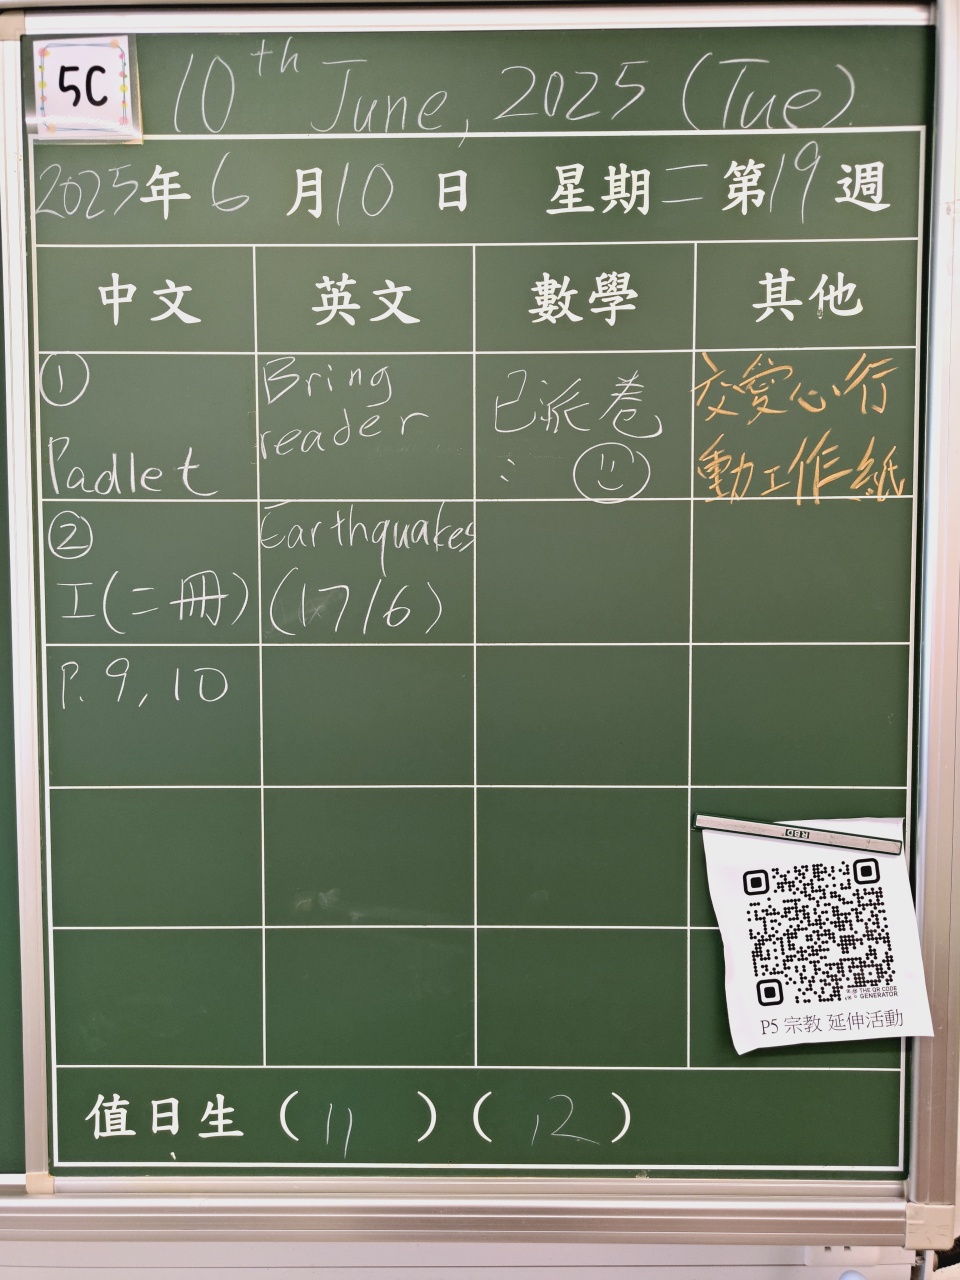 5C
10th June, 2025 (Tue)
2025年6月10日 星期二 第19週
中文 英文 數學 其他
①
Padlet
②
工(二冊)
P.9,10
Bring
reader
Earthquakes
(17/6)
已派卷
交愛心行
動工作紙
RBD
THE QR CODE
GENERATOR
P5 宗教 延伸活動
值日生 (11) (12)